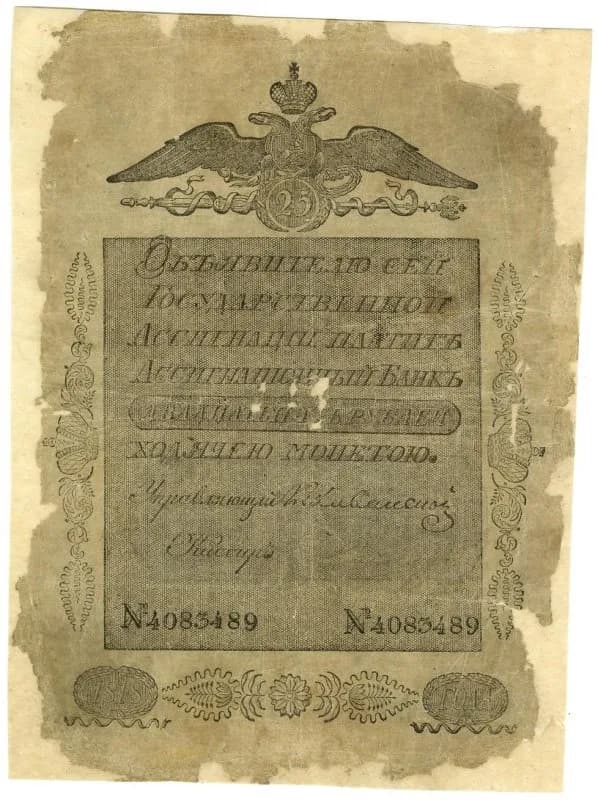 25
Объявителю сей
Государственной
Ассигнации платитъ
Ассигнационный Банкъ
рублей
ходячею монетою.
Управляющій
Кассиръ
№4083489 №4083489
1818 года